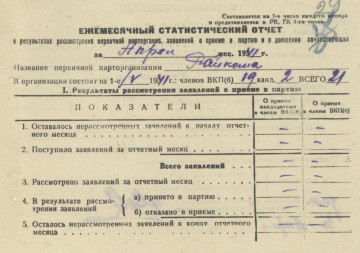 Составляется на 1-е число каждого месяца
и представляется в РК, ГК 3-го числа.
ЕЖЕМЕСЯЧНЫЙ СТАТИСТИЧЕСКИЙ ОТЧЕТ
о результатах рассмотрения первичной парторганизац. заявлений о приеме в партию и о движении
за Апрель мес. 1941 г.
Название первичной парторганизации Райкома
В организации состоит на 1-е/V 1941 г.: членов ВКП(б) 19 канд. 2 ВСЕГО 21
I. Результаты рассмотрения заявлений о приеме в партию
ПОКАЗАТЕЛИ
О приеме кандидатами в члены ВКП(б)
О приеме в члены ВКП(б)
1. Оставалось нерассмотренных заявлений к началу отчетного месяца
2. Поступило заявлений за отчетный месяц
Всего заявлений
3. Рассмотрено заявлений за отчетный месяц
4. В результате рассмотрения заявлений
а) принято в партию
б) отказано в приеме
5. Осталось нерассмотренных заявлений к концу отчетного месяца